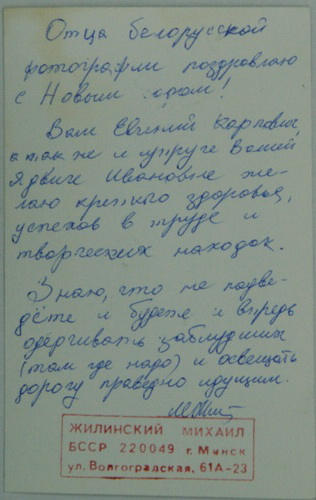 Отца белорусской
фотографии поздравляю
с Новым годом!
Вам Евгений Карлович,
а также супруге Вашей
Ядвиге Ивановне же-
лаю крепкого здоровья,
успехов в труде и
творческих находок.
Знаю, что не подве-
дёте и будете и впредь
одёргивать заблудших
(там где надо) и освещать
дорогу праведно идущим.
ЖИЛИНСКИЙ МИХАИЛ
БССР 220049 г. Минск
ул. Волгоградская, 61А-23